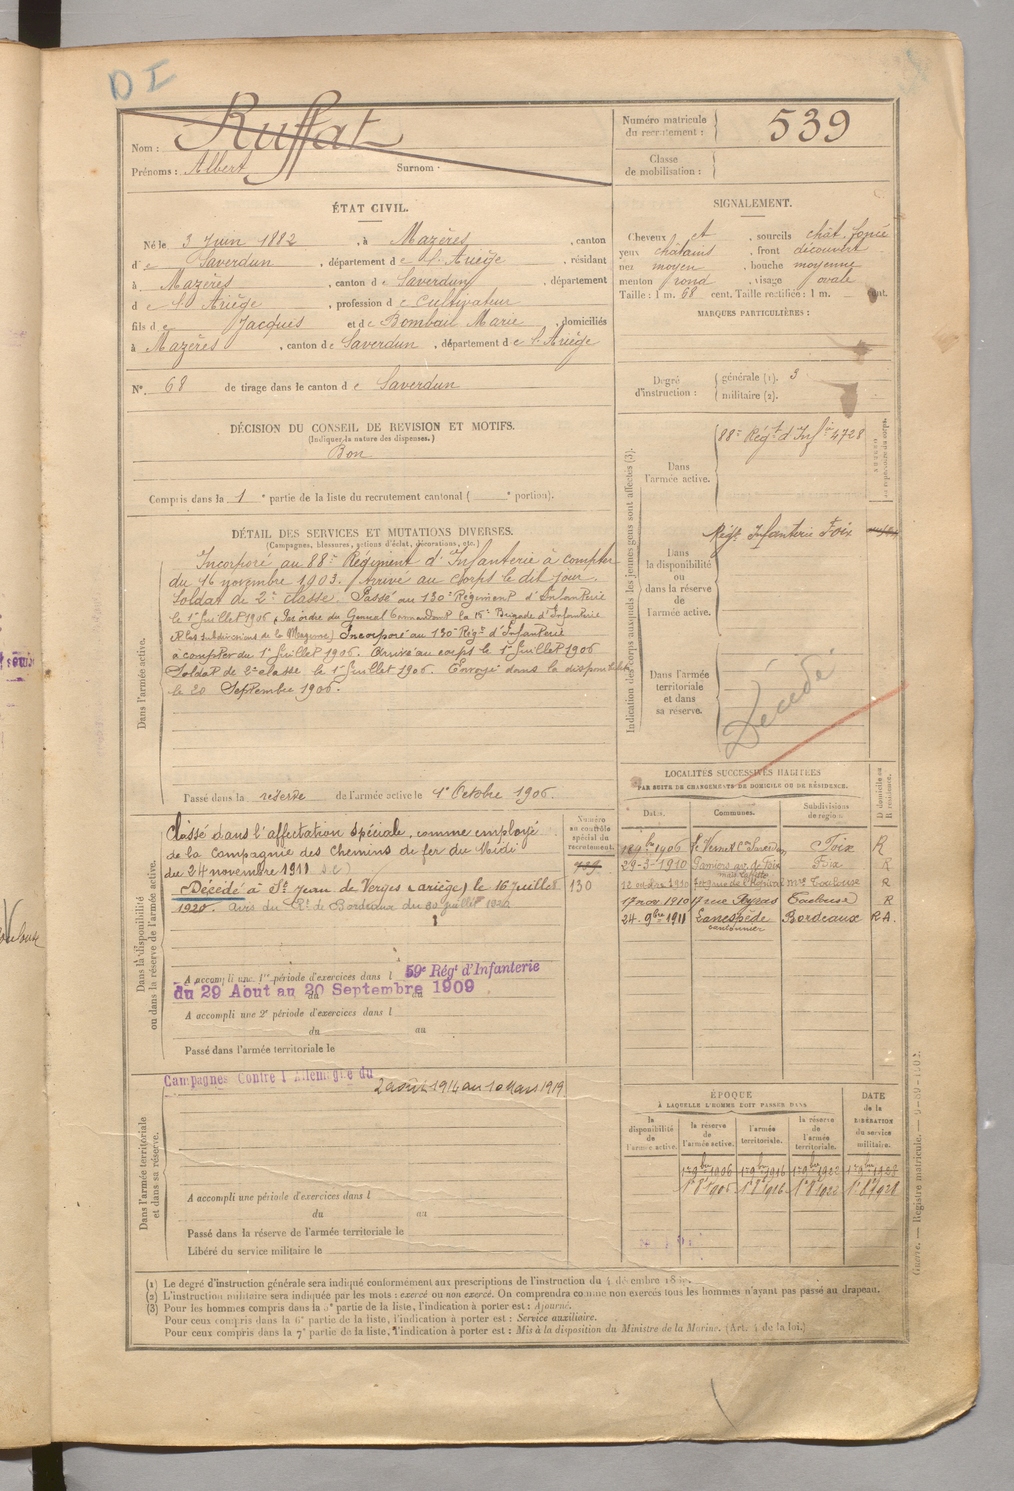 D I
Nom : Ruffat
Prénoms : Albert Surnom
Numéro matricule du recrutement : 539
Classe de mobilisation :
ÉTAT CIVIL.
Né le 3 Juin 1882, à Mazères, canton
d e Saverdun, département d e l'Ariège, résidant
à Mazères, canton d e Saverdun, département
d e l'Ariège, profession d e Cultivateur
fils d e Jacques et d e Bombail Marie, domiciliés
à Mazères, canton d e Saverdun, département d e l'Ariège
N° 68 de tirage dans le canton d e Saverdun
SIGNALEMENT.
Cheveux et sourcils chât. foncé
yeux châtains, front découvert
nez moyen, bouche moyenne
menton rond, visage ovale
Taille : 1 m. 68 cent. Taille rectifiée : 1 m. cent.
MARQUES PARTICULIÈRES :
Degré d'instruction : générale (1). 3
militaire (2).
DÉCISION DU CONSEIL DE REVISION ET MOTIFS.
(Indiquer la nature des dispenses.)
Bon
Compris dans la 1e partie de la liste du recrutement cantonal ( e portion).
Indication des corps auxquels les jeunes gens sont affectés (3).
Dans l'armée active.
88e Régt d'Inf ie 4728
Dans la disponibilité ou dans la réserve de l'armée active.
Régt Infanterie Foix
Dans l'armée territoriale et dans sa réserve.
Décédé
DÉTAIL DES SERVICES ET MUTATIONS DIVERSES.
(Campagnes, blessures, actions d'éclat, décorations, etc.)
Dans l'armée active.
Incorporé au 88e Régiment d'Infanterie à compter
du 16 novembre 1903. Arrivé au corps le dit jour.
Soldat de 2e classe. Passé au 130e Régiment d'Infanterie
le 1er Juillet 1906, Par ordre du General Commandant la 15e Brigade d'Infanterie
et les subdivisions de la Mayenne) Incorporé au 130e Régt d'Infanterie
à compter du 1er Juillet 1906. Arrivé au corps le 1er Juillet 1906
Soldat de 2e classe le 1er Juillet 1906. Envoyé dans la disponibilité
le 20 Septembre 1906.
Passé dans la réserve de l'armée active le 1er Octobre 1906.
Dans la disponibilité ou dans la réserve de l'armée active.
Numéro au contrôle spécial du recrutement.
130
Classé dans l'affectation spéciale, comme employé
de la Compagnie des Chemins de fer du Midi
du 24 novembre 1911 S.C)
Décédé à St Jean de Verges (Ariège) le 16 Juillet
1920. Avis du Rt de Bordeaux du 30 Juillet 1920
A accompli une 1re période d'exercices dans l 59e Régt d'Infanterie
du 29 Aout au 20 Septembre 1909
A accompli une 2e période d'exercices dans l
du au
Passé dans l'armée territoriale le
LOCALITÉS SUCCESSIVES HABITÉES
PAR SUITE DE CHANGEMENTS DE DOMICILE OU DE RÉSIDENCE.
Dates. Communes. Subdivisions de région. D domicile ou R résidence.
18 9bre 1906 le Vernet Con Saverdun Foix R
29-3-1910 Pamiers av. de Foix Foix R
Toulouse R
17 nov. 1910 Toulouse R
24. 9bre 1911 Lanespède Bordeaux RA.
cantonnier
Dans l'armée territoriale et dans sa réserve.
Campagnes Contre l'Allemagne du 2 août 1914 au 10 Mars 1919
A accompli une période d'exercices dans l
du au
Passé dans la réserve de l'armée territoriale le
Libéré du service militaire le
ÉPOQUE
À LAQUELLE L'HOMME DOIT PASSER DANS
la disponibilité de l'armée active. la réserve de l'armée active. l'armée territoriale. la réserve de l'armée territoriale.
DATE de la LIBÉRATION du service militaire.
1er 9bre 1906 1er 9bre 1916 1er 9bre 1922 1er 9bre 1928
1er 8bre 1906 1er 8bre 1916 1er 8bre 1922 1er 8bre 1928
(1) Le degré d'instruction générale sera indiqué conformément aux prescriptions de l'instruction du 4 décembre
(2) L'instruction militaire sera indiquée par les mots : exercé ou non exercé. On comprendra comme non exercés tous les hommes n'ayant pas passé au drapeau.
(3) Pour les hommes compris dans la 5e partie de la liste, l'indication à porter est : Ajourné.
Pour ceux compris dans la 6e partie de la liste, l'indication à porter est : Service auxiliaire.
Pour ceux compris dans la 7e partie de la liste, l'indication à porter est : Mis à la disposition du Ministre de la Marine. (Art. 4 de la loi.)
Guerre. — Registre matricule.